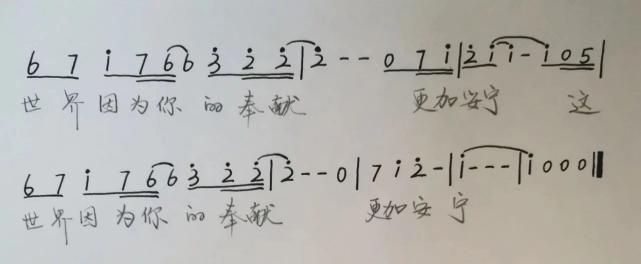 6 7 i 7 6 6 3 2 2 | 2 - - 0 7 i | 2 i i - i 0 5 |
世界因为你 的奉献 更加安宁 这
6 7 i 7 6 6 3 2 2 | 2 - - 0 | 7 i 2 - | i - - - | i 0 0 0 ‖
世界因为你 的奉献 更加安宁